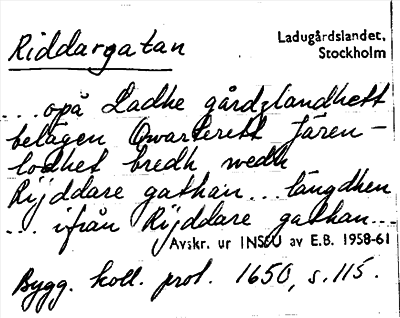 Riddargatan
Ladugårdslandet,
Stockholm
...opå Ladhe gårdzlandhett
belägen Qwarterett Jären-
lodhet bredh wedh
Rijddare gathan... längdhen
... ifrån Rijddare gathan...
Avskr. ur INSFU av E.B. 1958-61
Bygg. koll. prot. 1650, s. 115.